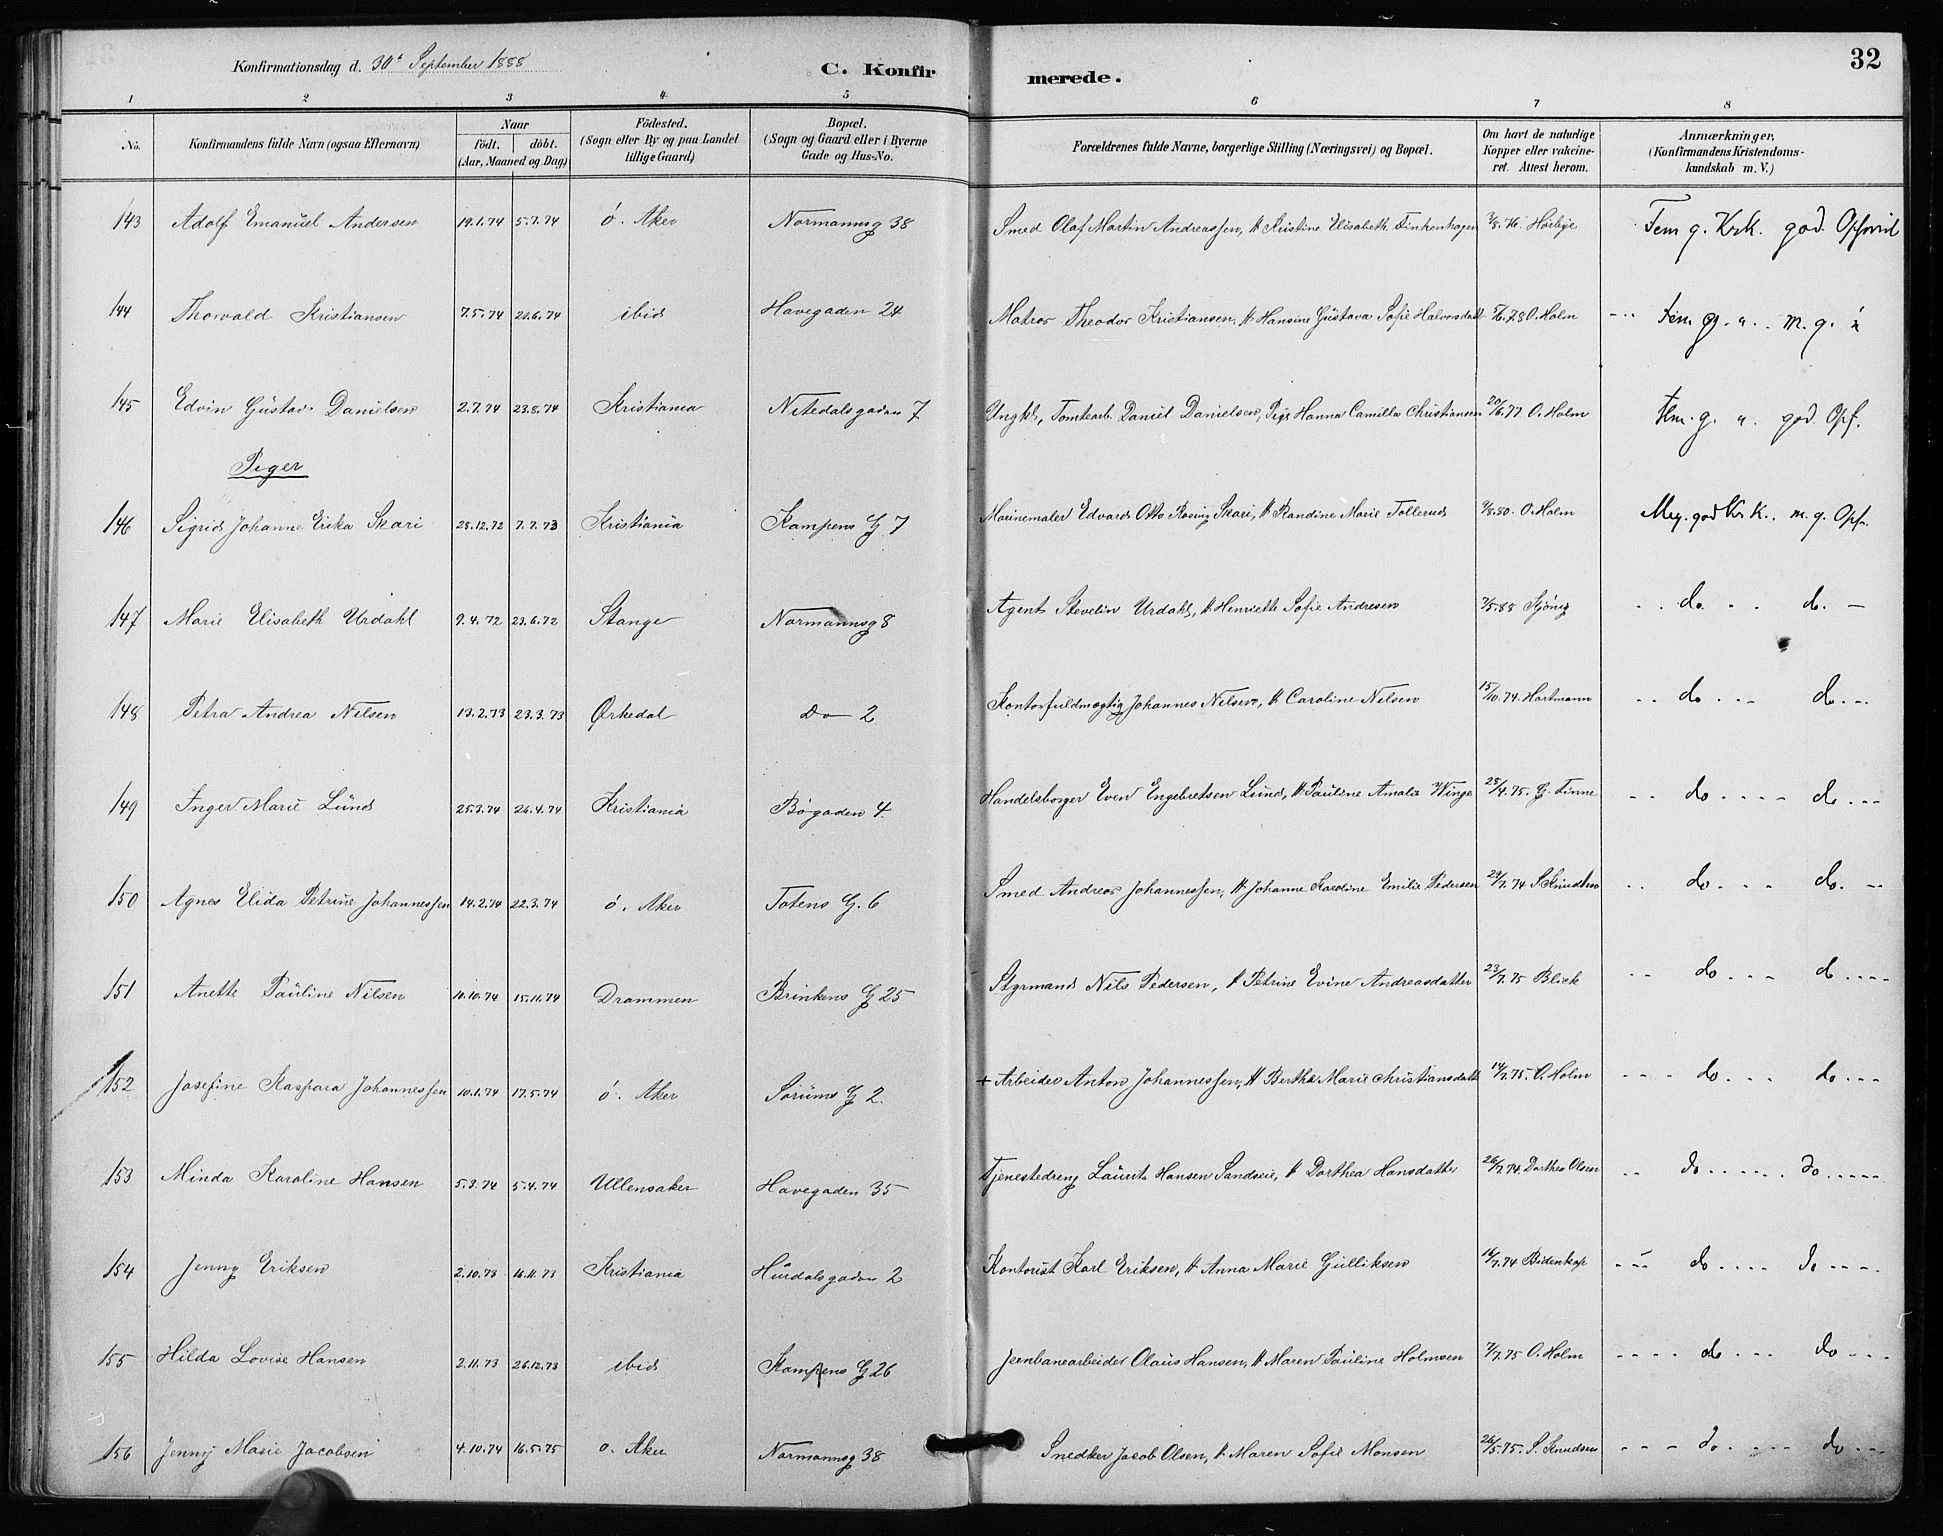 Konfirmationsdag d. 30t September 1888 C. Konfirmerede. 32
1 2 3 4 5 6 7 8
No. Konfirmandens fulde Navn (ogsaa Efternavn) Naar født. døbt. (Aar, Maaned og Dag) Fødested. (Sogn eller By og paa Landet tillige Gaard) Bopæl. (Sogn og Gaard eller i Byerne Gade og Hus-No. Forældrenes fulde Navne, borgerlige Stilling (Næringsvei) og Bopæl. Om havt de naturlige Kopper eller vakcineret. Attest herom. Anmærkninger, (Konfirmandens Kristendomskundskab m. V.)
143 Adolf Emanuel Andersen 19.1.74 5.7.74 ö. Aker Normannsg 38 Smed Olaf Martin Andreassen, H Kristine Elisabeth Finkenhagen Tem g. Krk. god
144 Thorvald Kristiansen 7.5.74 21.6.74 ibid Havegaden 24 Matros Theodor Kristiansen, H Hansine Gustava Sofie Halvorsdatt O. Holm --- Tem g. " .. m. g.
145 Edvin Gustav Danielsen 2.7.74 23.8.74 Kristiania Nitedalsgaden 7 Ungkl, Tomtearb. Daniel Danielsen, Pige Hanna Camilla Christiansen 20/6.77 O. Holm Tem. g. " . god Opf.
Piger
146 Sigrid Johanne Erika Skari 28.12.72 7.7.73 Kristiania Kampens G 7 Marinemaler Edvard Otto Rosing Skari, H Randine Marie Tollerud O. Holm Meg. god Krk. m. g. Opf.
147 Marie Elisabeth Urdahl 9.4.72 23.6.72 Stange Normannsg 8 Agent Stevelin Urdahl, H Henriette Sofie Andresen .. do. .. do. —
148 Petra Andrea Nilsen 13.2.73 23.3.73 Ørkedal Do 2 Kontorfuldmægtig Johannes Nilsen, H Caroline Nilsen 15/10.74. Hartmann .. do .. - do. --
149 Inger Marie Lund 25.3.74 26.4.74 Kristiania Bøgaden 4 Handelsborger Even Engebretsen Lund, H Pauline Amalie Winge 28/4.75. G. Finne -- do ---- do. --
150 Agnes Elida Petrine Johannessen 14.2.74 22.3.74 ö. Aker Totens G. 6 Smed Andreas Johannessen, H Johanne Karoline Emilie Pedersen S. Knudsen .. do. .. do. --
151 Anette Pauline Nilsen 10.10.74 15.11.74 Drammen Brinkens G 25 Styrmand Nils Pedersen, H Petrine Evine Andreasdatter 23/7.75 Blick -- do. --- do ----
152 Josefine Kaspara Johannessen 10.1.74 17.5.74 ö. Aker Sørums G 2. + Arbeider Anton Johannessen, H Berthe Marie Christiansdatt 14/7.75. O. Holm --- do. --- do. --
153 Minda Karoline Hansen 5.3.74 5.4.74 Ullensaker Havegaden 35 Tjenestedreng Laurits Hansen Sandseie, H Dorthea Hansdatter 26/7.74. Dorthea Olsen .. do ----- do -----
154 Jenny Eriksen 2.10.73 16.11.73 Kristiania Hurdalsgaden 2 Kontorist Karl Eriksen, H Anna Marie Gulliksen 16/7.74 Bidenkap --- do. --- do ----
155 Hilda Lovise Hansen 2.11.73 26.12.73 ibid Kampens G 26 Jernbanearbeider Olaus Hansen, H Maren Pauline Holmsen 7/7.75 O. Holm ---- do --- do ---
156 Jenny Marie Jacobsen 4.10.74 16.5.75 ö. Aker Normannsg 38 Snedker Jacob Olsen, H Maren Sofie Monsen 26/5.75. S. Knudsen --- do. --- do ---